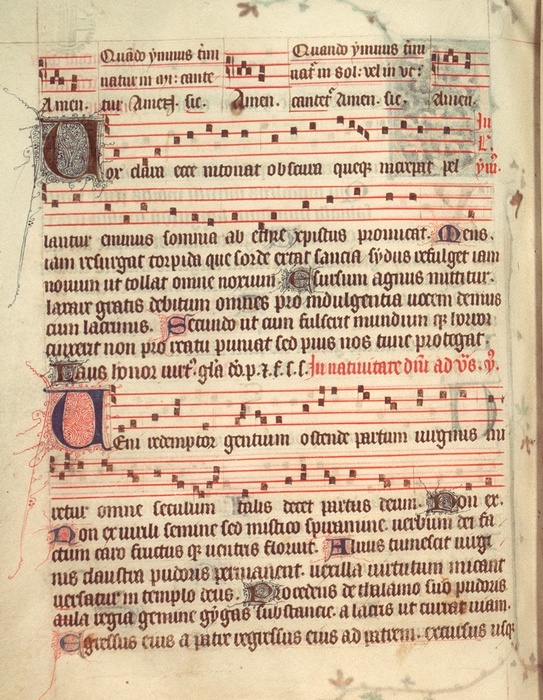 Quando ymnus tim Quando ymnus tim
natur in ay: cante nat in sol: vel in ve:
Amen. tur Amen. sic. Amen. cantet Amen. sic. Amen.
In
L.
Vox clara ecce intonat obscura queque increpat pel ym9.
lantur eminus somnia ab ethre xpistus promicat. Mens
iam resurgat torpida que sorde extat saucia sydus refulget iam
nouum ut tollat omne noxium Esursum agnus mittitur.
laxare gratis debitum omnes pro indulgentia uocem demus
cum lacrimis. Secundo ut cum fulserit mundum q horror
cinxerit non pro reatu puniat sed pius nos tunc protegat.
Laus honor uirt9. gla do. p. z. f. s. s. In natiuitate dni ad vs. y.
Ueni redemptor gentium ostende partum uirginis mi
retur omne seculum talis decet partus deum. Non ex.
Non ex uirili semine sed mistico spiramine. uerbum dei fa
ctum caro fructus q uentris floruit. Aluus tumescit uirgi
nis claustra pudoris permanent. uexilla uirtutum micant
uersatur in templo deus. Procedens de thalamo suo pudoris
aula regia gemine gygas substancie. alacris ut currat uiam.
Egressus eius a patre regressus eius ad patrem. excursus usq